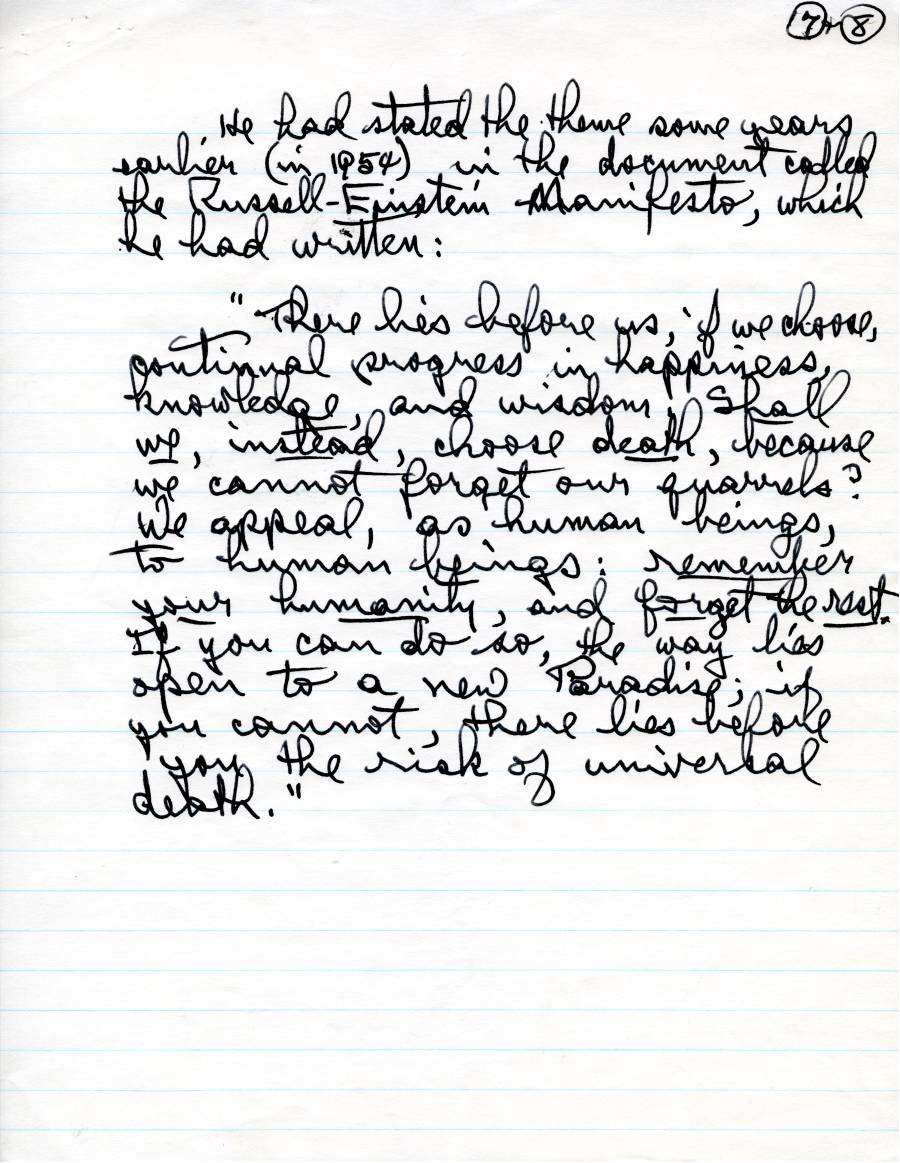 7 + 8
He had stated the theme some years
earlier (in 1954) in the document called
the Russell-Einstein Manifesto, which
he had written:
"There lies before us, if we choose,
continual progress in happiness,
knowledge, and wisdom. Shall
we, instead, choose death, because
we cannot forget our quarrels?
We appeal, as human beings,
to human beings: remember
your humanity, and forget the rest.
If you can do so, the way lies
open to a new Paradise; if
you cannot, there lies before
you the risk of universal
death."